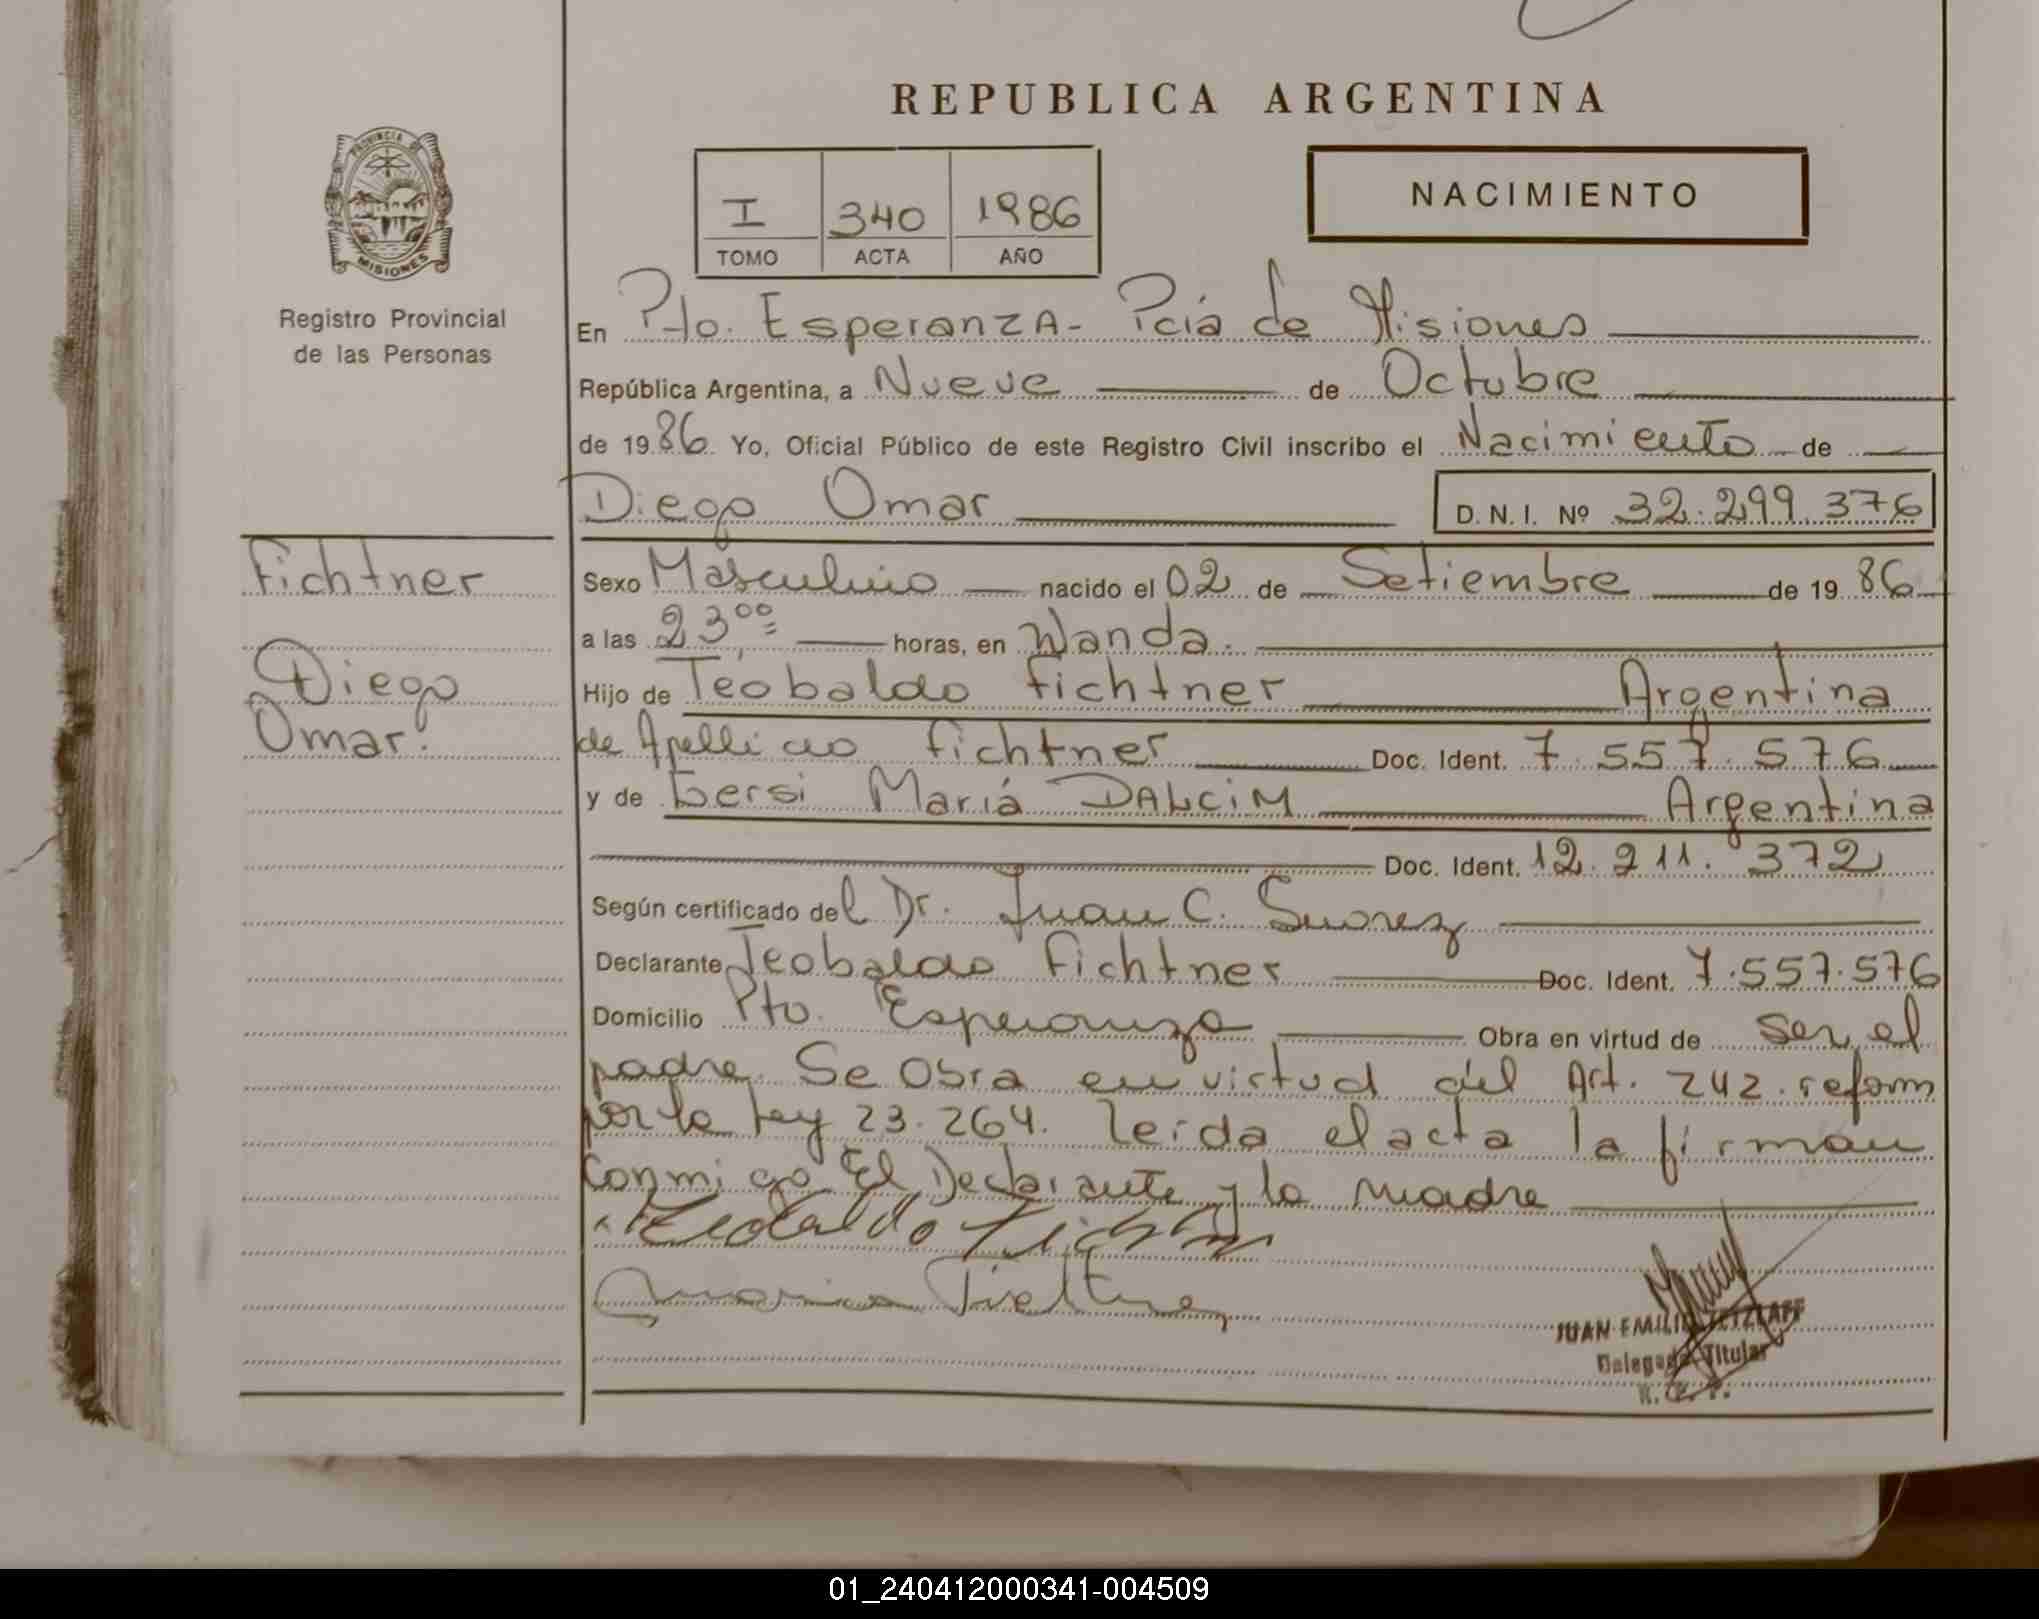 REPUBLICA ARGENTINA
PROVINCIA DE
MISIONES
Registro Provincial
de las Personas
NACIMIENTO
I 340 1986
TOMO ACTA AÑO
En Pto. Esperanza - Pcia de Misiones
República Argentina, a Nueve de Octubre
de 1986 Yo, Oficial Público de este Registro Civil inscribo el Nacimiento de
Diego Omar D. N. I. Nº 32.299.376
Fichtner
Diego
Omar.
Sexo Masculino nacido el 02 de Setiembre de 1986
a las 23 00 horas, en Wanda.
Hijo de Teobaldo Fichtner Argentina
de Apellido Fichtner Doc. Ident. 7.557.576
y de Gersi María DALCIM Argentina
Doc. Ident. 12.211.372
Según certificado del Dr. Juan C. Suarez
Declarante Teobaldo Fichtner Doc. Ident. 7.557.576
Domicilio Pto. Esperanza Obra en virtud de ser el
padre. Se obra en virtud del Art. 242. reform
por la Ley 23.264. leída el acta la firman
conmigo El Declarante y la madre
Teobaldo Fichtner
Maria
JUAN EMILIO TETZLAFF
Delegado Titular
R. C. P.
01_240412000341-004509